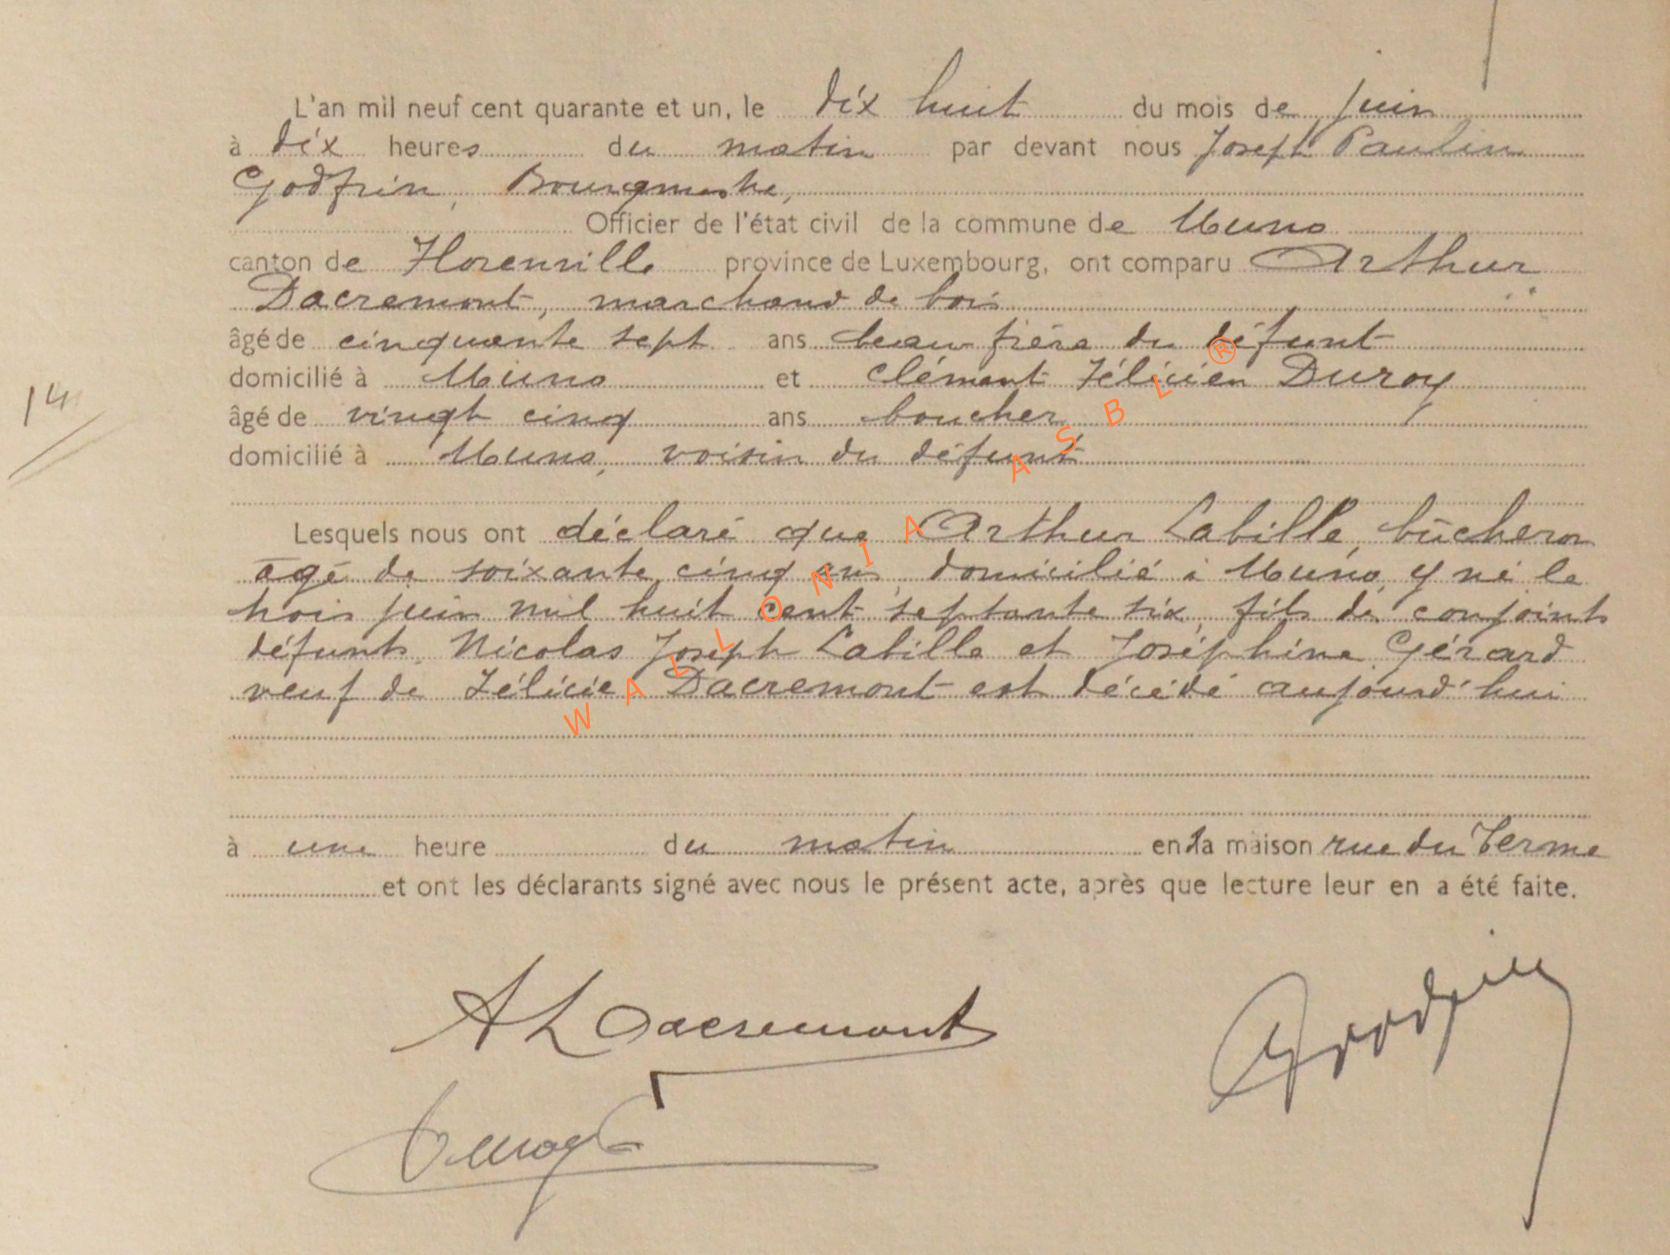 L'an mil neuf cent quarante et un, le dix huit du mois de juin
à dix heures du matin par devant nous Joseph Paulin
Godfrin, Bourgmestre,
Officier de l'état civil de la commune de Muno
canton de Florenville province de Luxembourg, ont comparu Arthur
Dacremont, marchand de bois
âgé de cinquante sept ans beau frère du défunt
domicilié à Muno et Clément Félicien Duroy
âgé de vingt cinq ans boucher
domicilié à Muno, voisin du défunt
14
Lesquels nous ont déclaré que Arthur Labille, bûcheron
âgé de soixante cinq ans, domicilié à Muno, y né le
trois juin mil huit cent septante six, fils de conjoints
défunts Nicolas Joseph Labille et Joséphine Gérard
veuf de Félicie Dacremont est décédé aujourd'hui
à une heure du matin en la maison rue du Terme
et ont les déclarants signé avec nous le présent acte, après que lecture leur en a été faite.
A L Dacremont
Godfrin
Duroy
WALLONIA ASBL ®